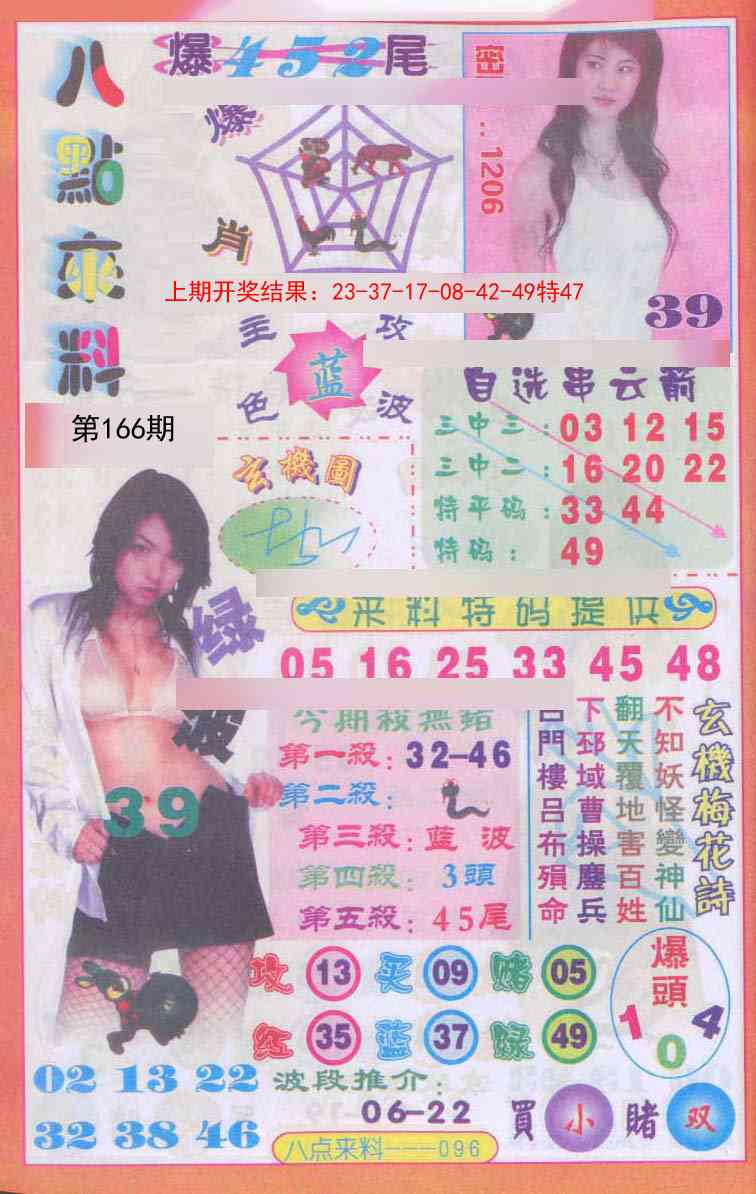 八點來料
爆452尾
爆
肖
1206
39
上期开奖结果：23-37-17-08-42-49特47
主攻
蓝
色波
第166期
自选串云箭
三中三：03 12 15
三中二：16 20 22
特平码：33 44
特码：49
玄機圖
来料特码提供
绿波
05 16 25 33 45 48
39
今期殺無錯
第一殺：32-46
第二殺：
第三殺：蓝波
第四殺：3頭
第五殺：45尾
玄機梅花詩
不知妖怪變神仙
翻天覆地害百姓
下邳域曹操鏖兵
門樓呂布殞命
攻 13 买 09 赌 05
红 35 蓝 37 绿 49
爆頭
1 0 4
02 13 22
32 38 46
波段推介：
06-22
買小賭双
八点来料---096